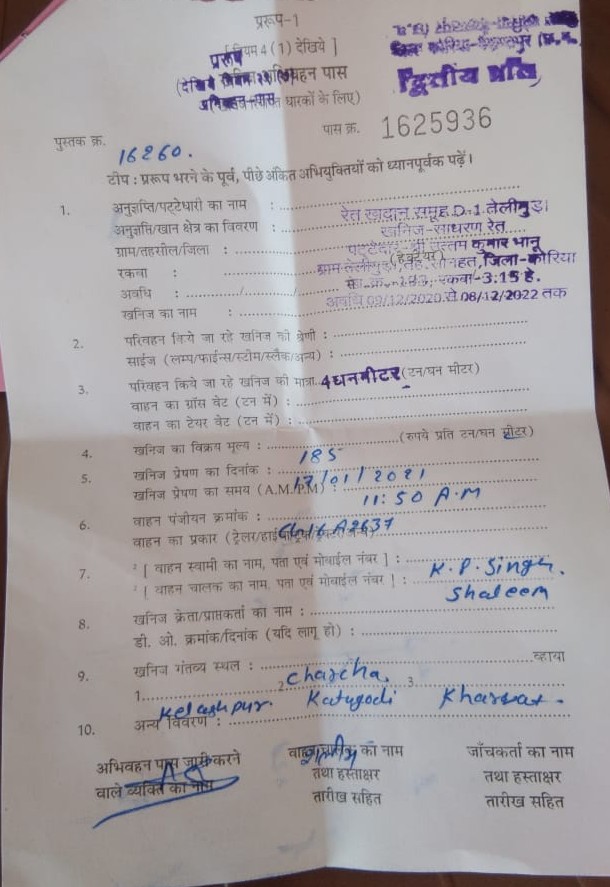 प्ररूप-1
नियम 4 (1) देखिये ]
प्ररूप
(देखिये नियम
अभिवहन पास
अभिवहन-पास धारकों के लिए)
जिला कोरिया-बैकुण्ठपुर
द्वितीय प्रति
पुस्तक क्र. 16260.
पास क्र. 1625936
टीप : प्ररूप भरने के पूर्व, पीछे अंकित अभियुक्तियों को ध्यानपूर्वक पढ़ें।
1. अनुज्ञप्ति/पट्टेधारी का नाम : रेत खदान समूह D.1 तेलीमुड़ा
अनुज्ञप्ति/खान क्षेत्र का विवरण : खनिज-साधारण रेत
ग्राम/तहसील/जिला : पट्टेदार-श्री उत्तम कुमार भानू
रकबा : (हेक्टेयर) ग्राम-तेलीमुड़ा, तह. सोनहत, जिला-कोरिया
अवधि : ख. क्र.-183, रकबा-3.15 हे.
खनिज का नाम : अवधि 09/12/2020 से 08/12/2022 तक
2. परिवहन किये जा रहे खनिज की श्रेणी :
साईज (लम्प/फाईन्स/स्टीम/स्लैक/अन्य) :
3. परिवहन किये जा रहे खनिज की मात्रा 4 घनमीटर (टन/घन मीटर)
वाहन का ग्रॉस वेट (टन में) :
वाहन का टेयर वेट (टन में) :
4. खनिज का विक्रय मूल्य : 185 (रुपये प्रति टन/घन मीटर)
5. खनिज प्रेषण का दिनांक : 17/01/2021
खनिज प्रेषण का समय (A.M./P.M) : 11:50 A.M
6. वाहन पंजीयन क्रमांक : CG16A2637
वाहन का प्रकार (ट्रेलर/हाईवा/
7. [ वाहन स्वामी का नाम, पता एवं मोबाईल नंबर ] : K.P. Singh.
[ वाहन चालक का नाम, पता एवं मोबाईल नंबर ] : Shaleem
8. खनिज क्रेता/प्राप्तकर्ता का नाम :
डी. ओ. क्रमांक/दिनांक (यदि लागू हो) :
9. खनिज गंतव्य स्थल : Charcha. व्हाया
1. Kelashpur. 2. Katugodi 3. Kharwat.
10. अन्य विवरण :
अभिवहन पास जारी करने वाहन चालक का नाम जाँचकर्ता का नाम
वाले व्यक्ति का नाम तथा हस्ताक्षर तथा हस्ताक्षर
तारीख सहित तारीख सहित